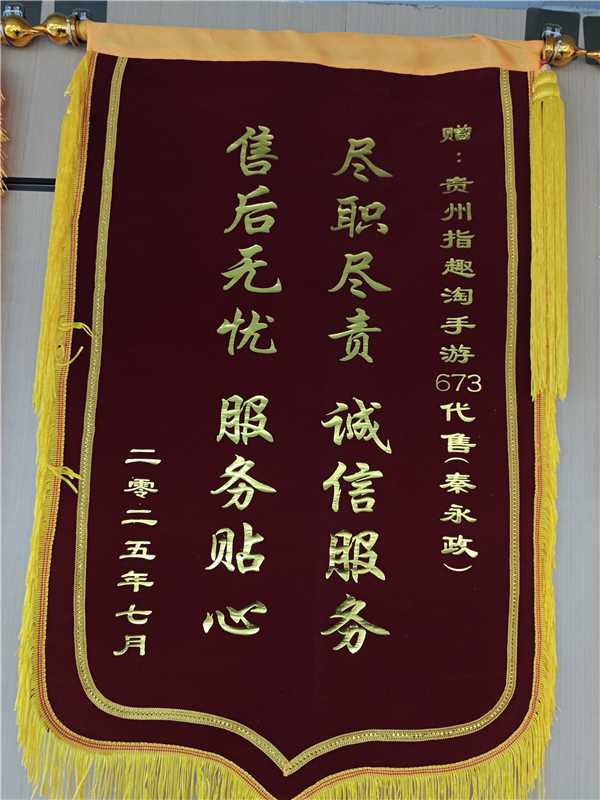 赠：贵州指趣淘手游673代售(秦永政)
尽职尽责 诚信服务
售后无忧 服务贴心
二零二五年七月